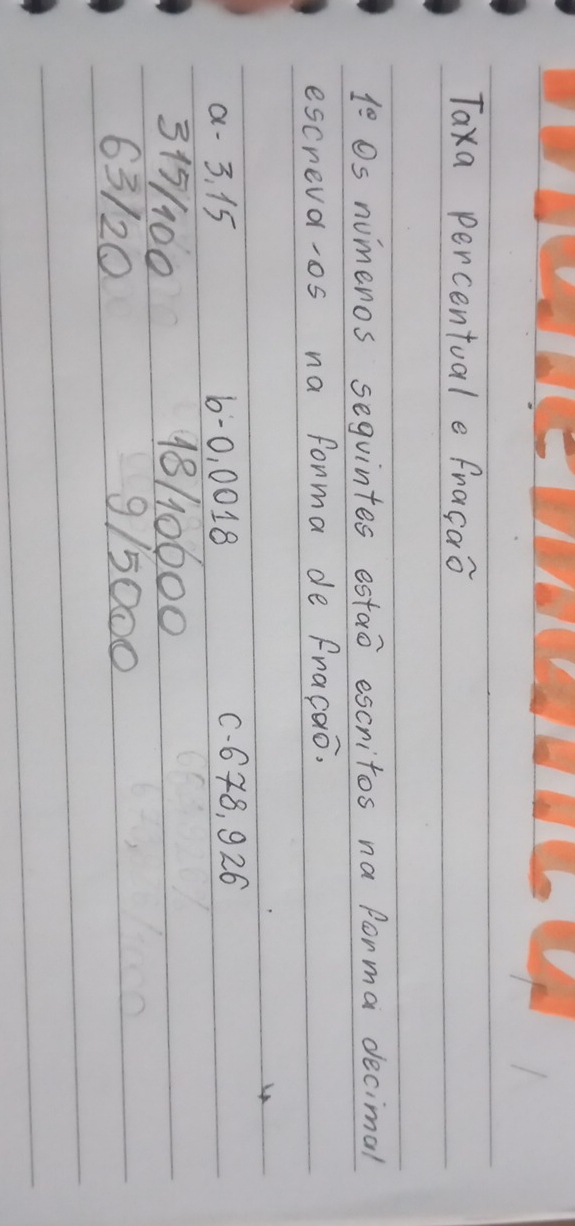 Taxa percentual e fração
1º Os números seguintes estão escritos na forma decimal
escreva-os na forma de fração.
a- 3,15 b-0,0018 c-678,926
315/100 18/10000
63/20 9/5000